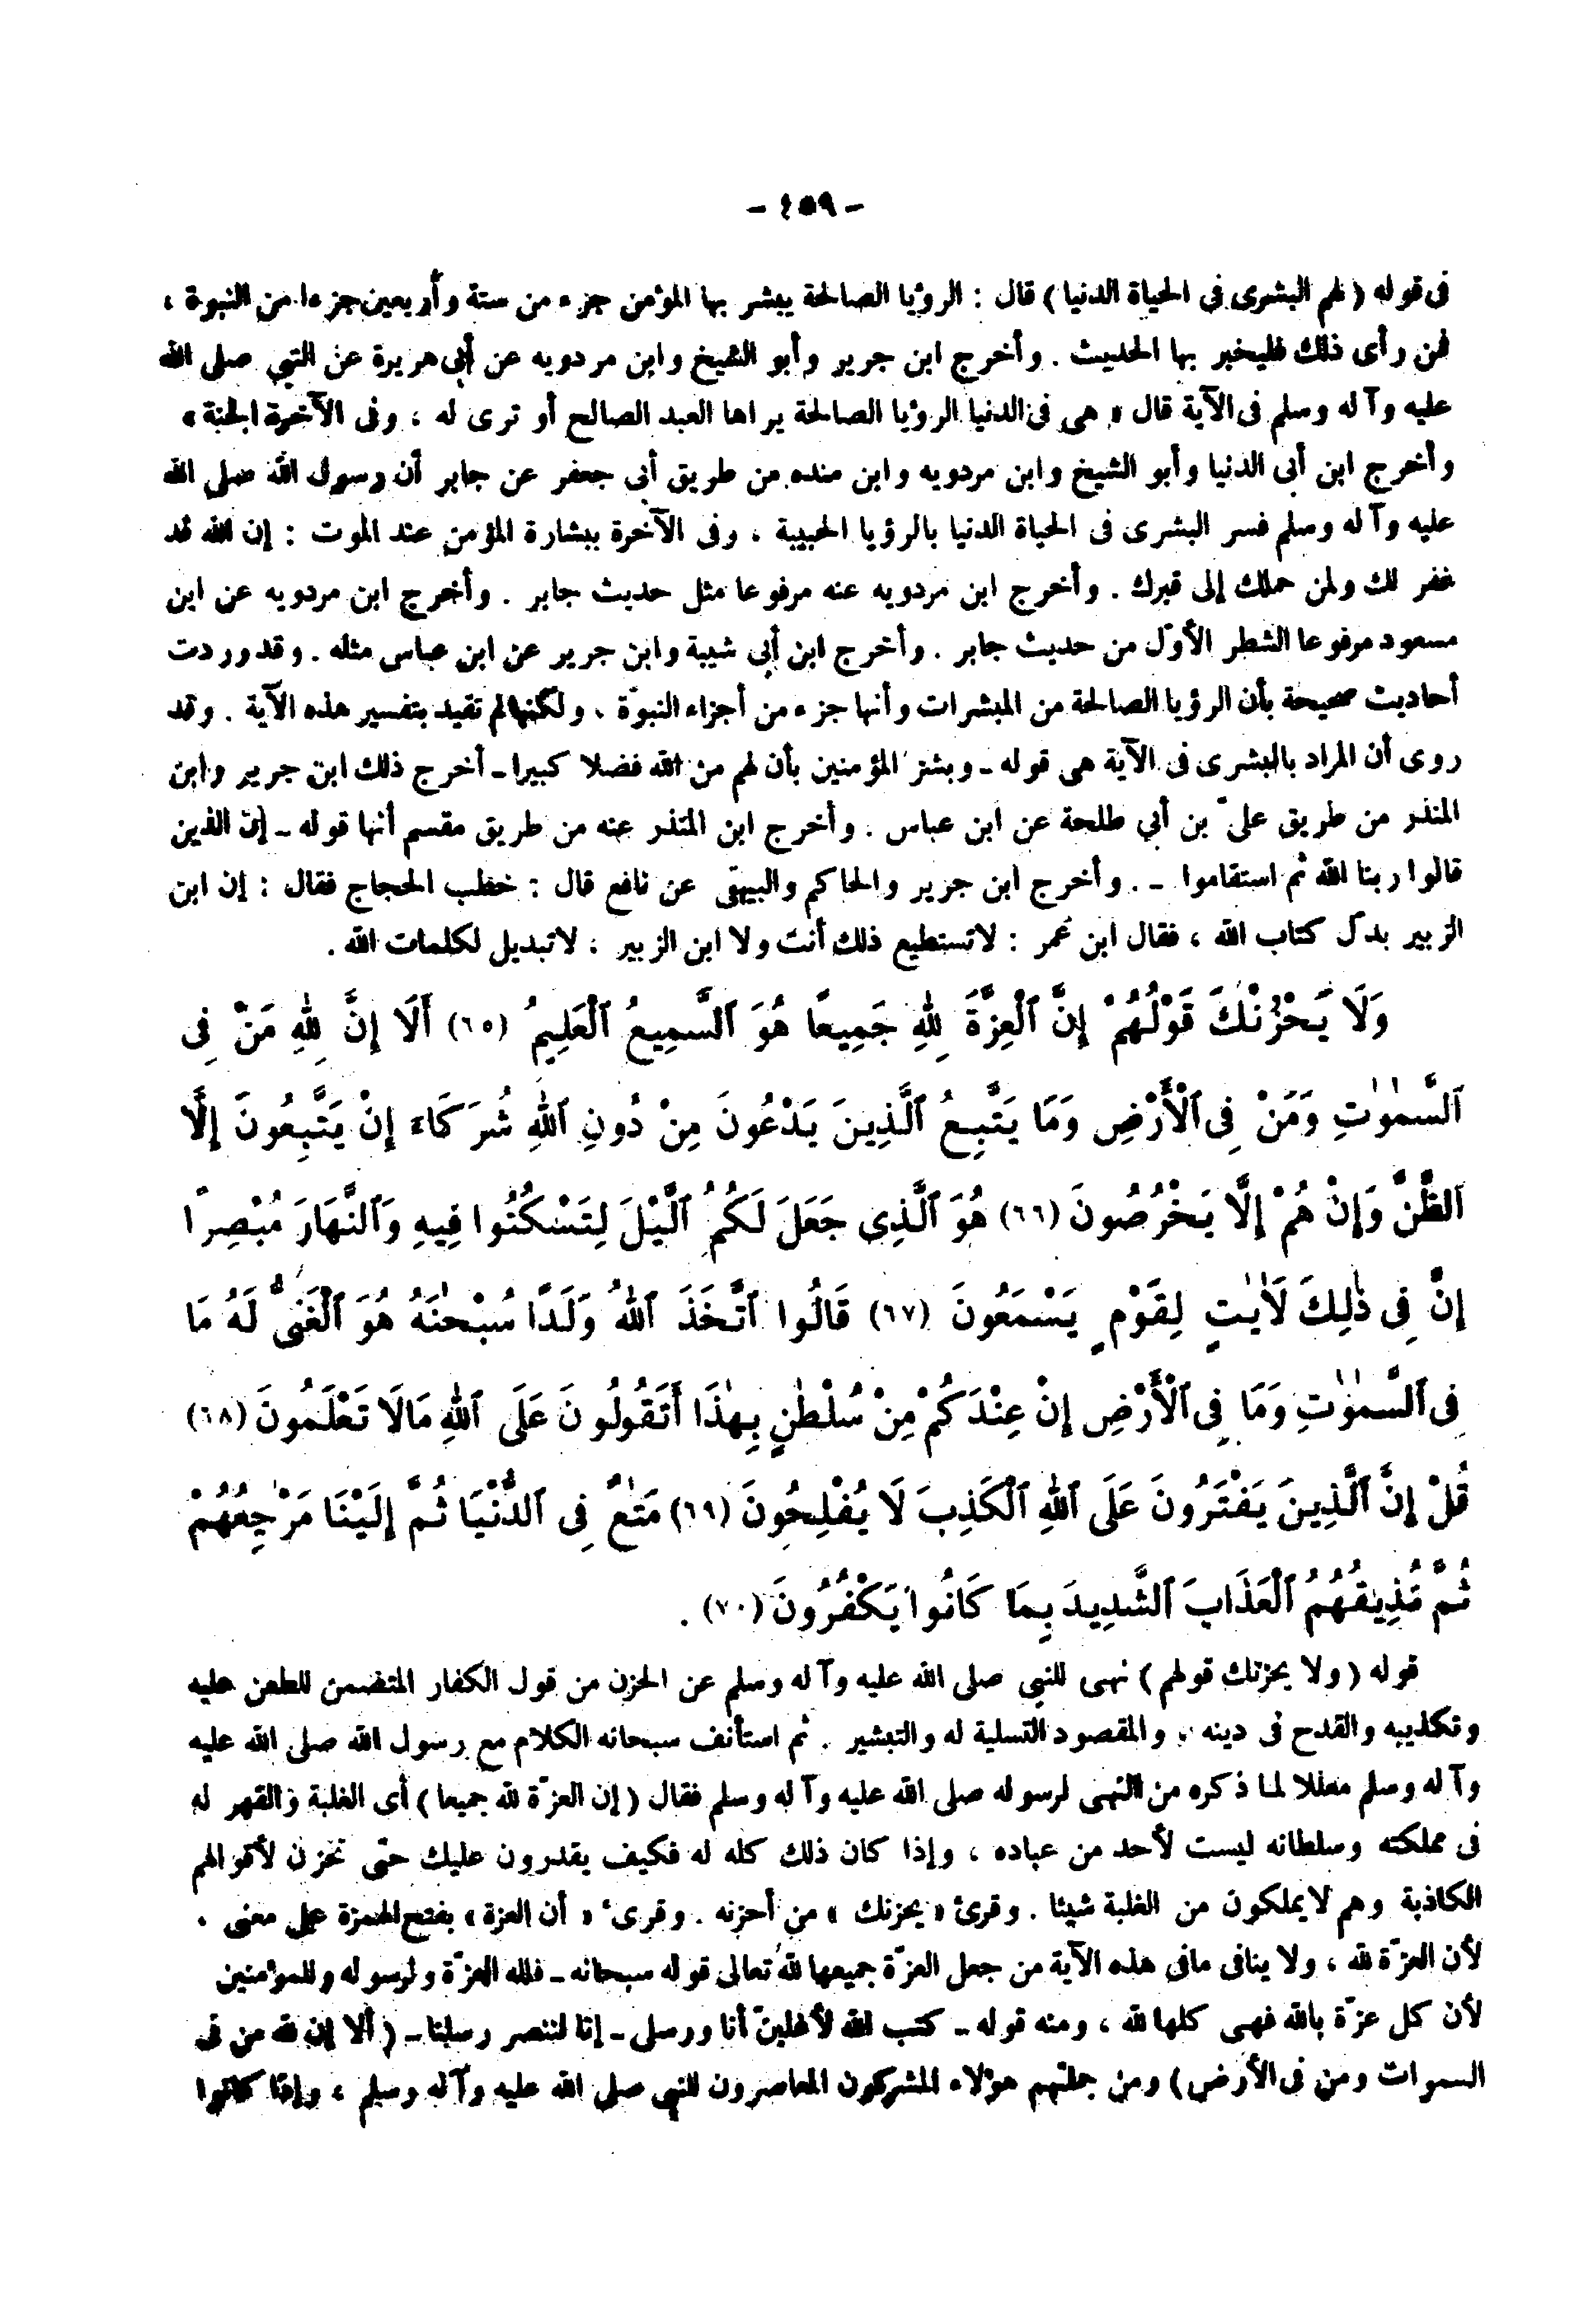 - ٤٥٩ -
فى قوله ( لهم البشرى فى الحياة الدنيا ) قال : الرؤيا الصالحة يبشر بها المؤمن جزء من ستة وأربعين جزءا من النبوة ،
فمن رأى ذلك فليخبر بها الحديث . وأخرج ابن جرير وأبو الشيخ وابن مردويه عن أبى هريرة عن النبي صلى الله
عليه وآله وسلم فى الآية قال « هى فى الدنيا الرؤيا الصالحة يراها العبد الصالح أو ترى له ، وفى الآخرة الجنة »
وأخرج ابن أبى الدنيا وأبو الشيخ وابن مردويه وابن منده من طريق أبى جعفر عن جابر أن رسول الله صلى الله
عليه وآله وسلم فسر البشرى فى الحياة الدنيا بالرؤيا الحبيبة ، وفى الآخرة ببشارة المؤمن عند الموت : إن الله قد
غفر لك ولمن حملك إلى قبرك . وأخرج ابن مردويه عنه مرفوعا مثل حديث جابر . وأخرج ابن مردويه عن ابن
مسعود مرفوعا الشطر الأوّل من حديث جابر . وأخرج ابن أبى شيبة وابن جرير عن ابن عباس مثله . وقد وردت
أحاديث صحيحة بأن الرؤيا الصالحة من المبشرات وأنها جزء من أجزاء النبوّة ، ولكنها لم تقيد بتفسير هذه الآية . وقد
روى أن المراد بالبشرى فى الآية هى قوله ـ وبشر المؤمنين بأن لهم من الله فضلا كبيرا ـ أخرج ذلك ابن جرير وابن
المنذر من طريق علىّ بن أبي طلحة عن ابن عباس . وأخرج ابن المنذر عنه من طريق مقسم أنها قوله ـ إن الذين
قالوا ربنا الله ثم استقاموا ـ . وأخرج ابن جرير والحاكم والبيهقى عن نافع قال : خطب الحجاج فقال : إن ابن
الزبير بدّل كتاب الله ، فقال ابن عمر : لاتستطيع ذلك أنت ولا ابن الزبير ، لاتبديل لكلمات الله .
وَلَا يَحْزُنْكَ قَوْلُهُمْ إِنَّ ٱلْعِزَّةَ لِلهِ جَمِيعًا هُوَ ٱلسَّمِيعُ ٱلْعَلِيمُ (٦٥) أَلَا إِنَّ لِلهِ مَنْ فِى
ٱلسَّمٰوٰتِ وَمَنْ فِى ٱلْأَرْضِ وَمَا يَتَّبِعُ ٱلَّذِينَ يَدْعُونَ مِنْ دُونِ ٱللهِ شُرَكَاءَ إِنْ يَتَّبِعُونَ إِلَّا
ٱلظَّنَّ وَإِنْ هُمْ إِلَّا يَخْرُصُونَ (٦٦) هُوَ ٱلَّذِى جَعَلَ لَكُمُ ٱلَّيْلَ لِتَسْكُنُوا فِيهِ وَٱلنَّهَارَ مُبْصِرًا
إِنَّ فِى ذٰلِكَ لَاٰيٰتٍ لِقَوْمٍ يَسْمَعُونَ (٦٧) قَالُوا ٱتَّخَذَ ٱللهُ وَلَدًا سُبْحٰنَهُ هُوَ ٱلْغَنِىُّ لَهُ مَا
فِى ٱلسَّمٰوٰتِ وَمَا فِى ٱلْأَرْضِ إِنْ عِنْدَكُمْ مِنْ سُلْطٰنٍ بِهٰذَا أَتَقُولُونَ عَلَى ٱللهِ مَالَا تَعْلَمُونَ (٦٨)
قُلْ إِنَّ ٱلَّذِينَ يَفْتَرُونَ عَلَى ٱللهِ ٱلْكَذِبَ لَا يُفْلِحُونَ (٦٩) مَتٰعٌ فِى ٱلدُّنْيَا ثُمَّ إِلَيْنَا مَرْجِعُهُمْ
ثُمَّ نُذِيقُهُمُ ٱلْعَذَابَ ٱلشَّدِيدَ بِمَا كَانُوا يَكْفُرُونَ (٧٠) .
قوله ( ولا يحزنك قولهم ) نهى للنبى صلى الله عليه وآله وسلم عن الحزن من قول الكفار المتضمن للطعن عليه
وتكذيبه والقدح فى دينه ، والمقصود التسلية له والتبشير . ثم استأنف سبحانه الكلام مع رسول الله صلى الله عليه
وآله وسلم معللا لما ذكره من النهى لرسوله صلى الله عليه وآله وسلم فقال ( إن العزّة لله جميعا ) أى الغلبة والقهر له
فى مملكته وسلطانه ليست لأحد من عباده ، وإذا كان ذلك كله له فكيف يقدرون عليك حتى تحزن لأقوالهم
الكاذبة وهم لايملكون من الغلبة شيئا . وقرئ « يحزنك » من أحزنه . وقرئ « أن العزة » بفتح الهمزة على معنى ،
لأن العزّة لله ، ولا ينافى مافى هذه الآية من جعل العزّة جميعها لله تعالى قوله سبحانه ـ فلله العزّة ولرسوله وللمؤمنين
لأن كل عزّة بالله فهى كلها لله ، ومنه قوله ـ كتب الله لأغلبنّ أنا ورسلى ـ إنا لننصر رسلنا ـ ( ألا إن لله من فى
السموات ومن فى الأرض ) ومن جملتهم هؤلاء المشركون المعاصرون للنبى صلى الله عليه وآله وسلم ، وإذا كانوا